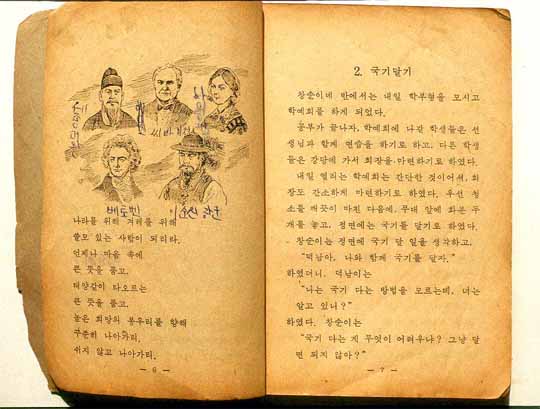 세종대왕
베토벤
이순신 장군
나라를 위해 겨레를 위해
쓸모 있는 사람이 되리라.
언제나 마음 속에
큰 뜻을 품고,
태양같이 타오르는
큰 뜻을 품고,
높은 희망의 봉우리를 향해
꾸준히 나아가리,
쉬지 않고 나아가리.
— 6 —
2. 국기달기
창순이네 반에서는 내일 학부형을 모시고
학예회를 하게 되었다.
공부가 끝나자, 학예회에 나갈 학생들은 선
생님과 함께 연습을 하기로 하고, 다른 학생
들은 강당에 가서 회장을 마련하기로 하였다.
내일 열리는 학예회는 간단한 것이어서, 회
장도 간소하게 마련하기로 하였다. 우선 청
소를 깨끗이 마친 다음에, 무대 앞에 화분 두
개를 놓고, 정면에는 국기를 달기로 하였다.
창순이는 정면에 국기 달 일을 생각하고,
"덕남아, 나와 함께 국기를 달자."
하였더니, 덕남이는
"나는 국기 다는 방법을 모르는데, 너는
알고 있니?"
하였다. 창순이는
"국기 다는 지 무엇이 어려우냐? 그냥 달
면 되지 않아?"
— 7 —